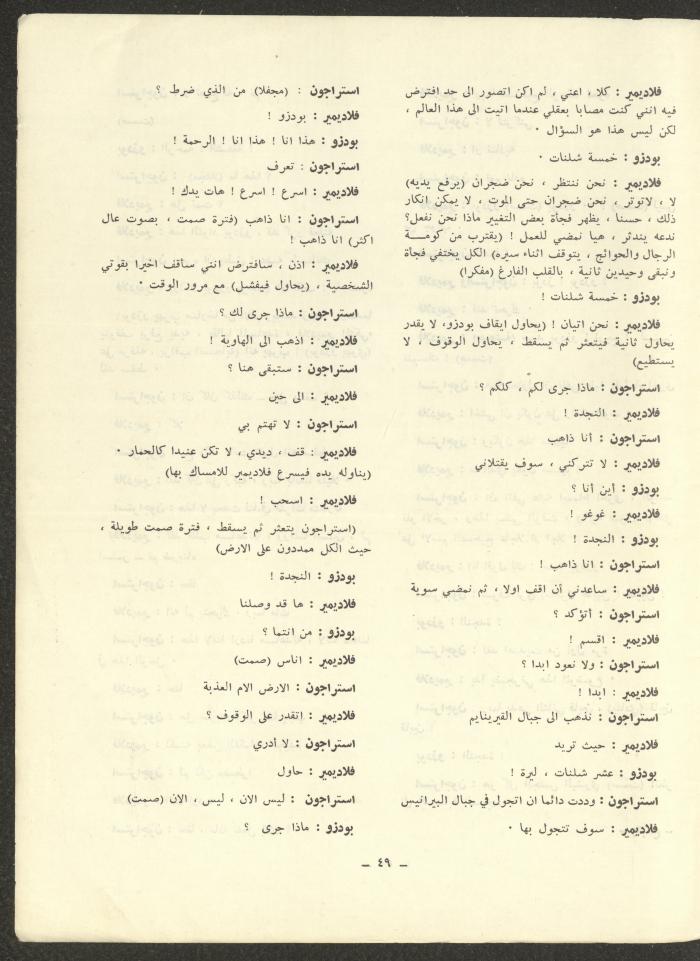 فلاديمير : كلا ، اعني ، لم اكن اتصور الى حد افترض
فيه انني كنت مصابا بعقلي عندما اتيت الى هذا العالم ،
لكن ليس هذا هو السؤال .
بودزو : خمسة شلنات .
فلاديمير : نحن ننتظر ، نحن ضجران (يرفع يديه)
لا ، لاتوتر ، نحن ضجران حتى الموت ، لا يمكن انكار
ذلك ، حسنا ، يظهر فجأة بعض التغيير ماذا نحن نفعل؟
ندعه يندثر ، هيا نمضي للعمل ! (يقترب من كومة
الرجال والحوائج ، يتوقف اثناء سيره) الكل يختفي فجأة
ونبقى وحيدين ثانية ، بالقلب الفارغ (مفكرا)
بودزو : خمسة شلنات !
فلاديمير : نحن اتيان ! (يحاول ايقاف بودزو، لا يقدر
يحاول ثانية فيتعثر ثم يسقط ، يحاول الوقوف ، لا
يستطيع)
استراجون : ماذا جرى لكم ، كلكم ؟
فلاديمير : النجدة !
استراجون : أنا ذاهب
فلاديمير : لا تتركني ، سوف يقتلاني
بودزو : أين أنا ؟
فلاديمير : غوغو !
بودزو : النجدة !
استراجون : انا ذاهب!
فلاديمير : ساعدني أن اقف اولا ، ثم نمضي سوية
استراجون : أتؤكد ؟
فلاديمير : اقسم !
استراجون : ولا نعود ابدا ؟
فلاديمير : ابدا !
استراجون : نذهب الى جبال الفيرينايم
فلاديمير : حيث تريد
بودزو : عشر شلنات ، ليرة !
استراجون : وددت دائما ان اتجول في جبال البيرانيس
فلاديمير : سوف تتجول بها .
استراجون : (مجفلا) من الذي ضرط ؟
فلاديمير : بودزو !
بودزو : هذا انا ! هذا انا ! الرحمة !
استراجون : تعرف
فلاديمير : اسرع ! اسرع ! هات يدك !
استراجون : انا ذاهب (فترة صمت ، بصوت عال
اكثر) انا ذاهب !
فلاديمير : اذن ، سافترض انني ساقف اخيرا بقوتي
الشخصية ، (يحاول فيفشل) مع مرور الوقت .
استراجون : ماذا جرى لك ؟
فلاديمير : اذهب الى الهاوية !
استراجون : ستبقى هنا ؟
فلاديمير : الى حين
استراجون : لا تهتم بي
فلاديمير : قف ، ديدي ، لا تكن عنيدا كالحمار .
(يناوله يده فيسرع فلاديمير للامساك بها)
فلاديمير : اسحب !
(استراجون يتعثر ثم يسقط ، فترة صمت طويلة ،
حيث الكل ممددون على الارض)
بودزو : النجدة !
فلاديمير : ها قد وصلنا
بودزو : من انتما ؟
فلاديمير : اناس (صمت)
استراجون : الارض الام العذبة
فلاديمير : اتقدر على الوقوف ؟
استراجون : لا أدري
فلاديمير : حاول
استراجون : ليس الان ، ليس ، الان (صمت)
بودزو : ماذا جرى ؟
– ٤٩ –